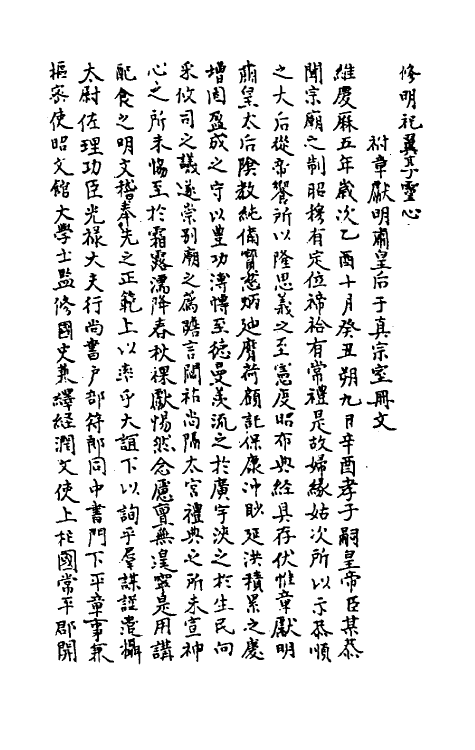 修明祀翼予靈心
祔章獻明肅皇后于真宗室冊文
維慶厤五年歲次乙酉十月癸丑朔九日辛酉孝子嗣皇帝臣某恭
聞宗廟之制昭穆有定位禘祫有常禮是故婦緣姑次所以示恭順
之大后從帝饗所以隆思義之至憲度昭布典經具存伏惟章獻明
肅皇太后陰教純備寶慈炳迪膺荷顧託保康沖眇延洪積累之慶
增固盈成之守以豐功溥博至徳曼羡流之於廣宇浹之於生民向
采攸司之議遂崇别廟之薦瞻言閟祐尚隔太宮禮典之所未宣神
心之所未愓至於霜露濡降春秋祼獻惕然念慮亶無遑寧是用講
配食之明文稽奉先之正範上以率乎大誼下以詢乎羣謀謹遣攝
太尉佐理功臣光禄大夫行尚書户部符郎同中書門下平章事兼
樞宻使昭文館大學士監修國史兼繹經潤文使上柱國常平郡開